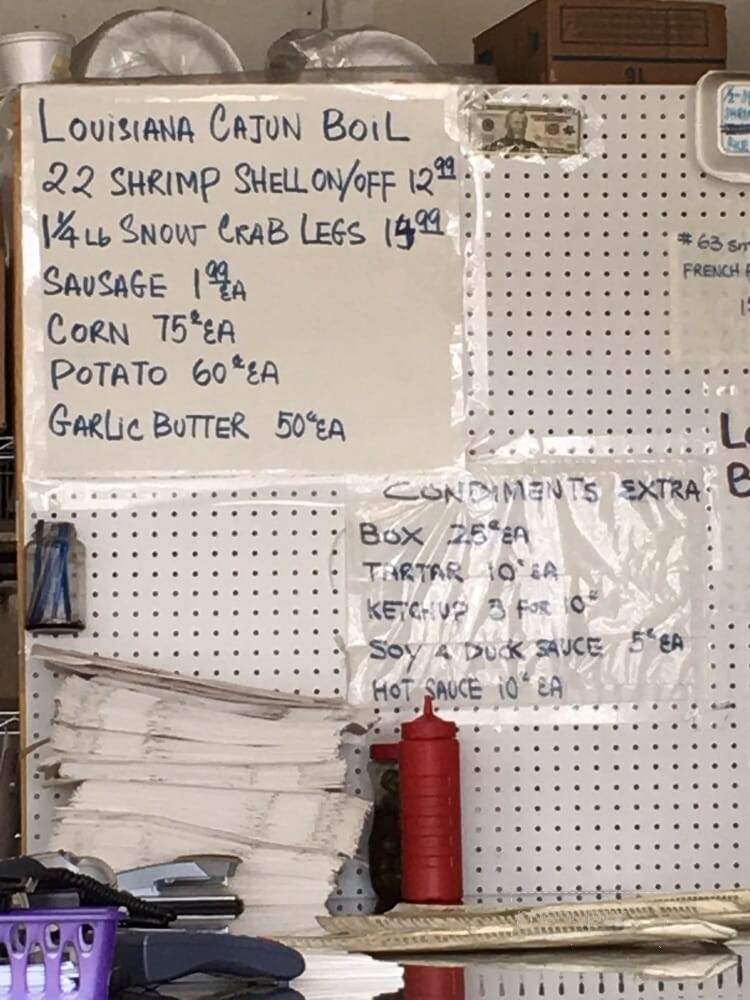 LOUISIANA CAJUN BOIL
22 SHRIMP SHELL ON/OFF 12 99
1 1/4 LB SNOW CRAB LEGS 99
SAUSAGE 1 99 EA
CORN 75¢ EA
POTATO 60¢ EA
GARLIC BUTTER 50¢ EA
CONDIMENTS EXTRA
BOX 25¢ EA
TARTAR 10¢ EA
KETCHUP 3 FOR 10¢
SOY & DUCK SAUCE 5¢ EA
HOT SAUCE 10¢ EA
#63
FRENCH